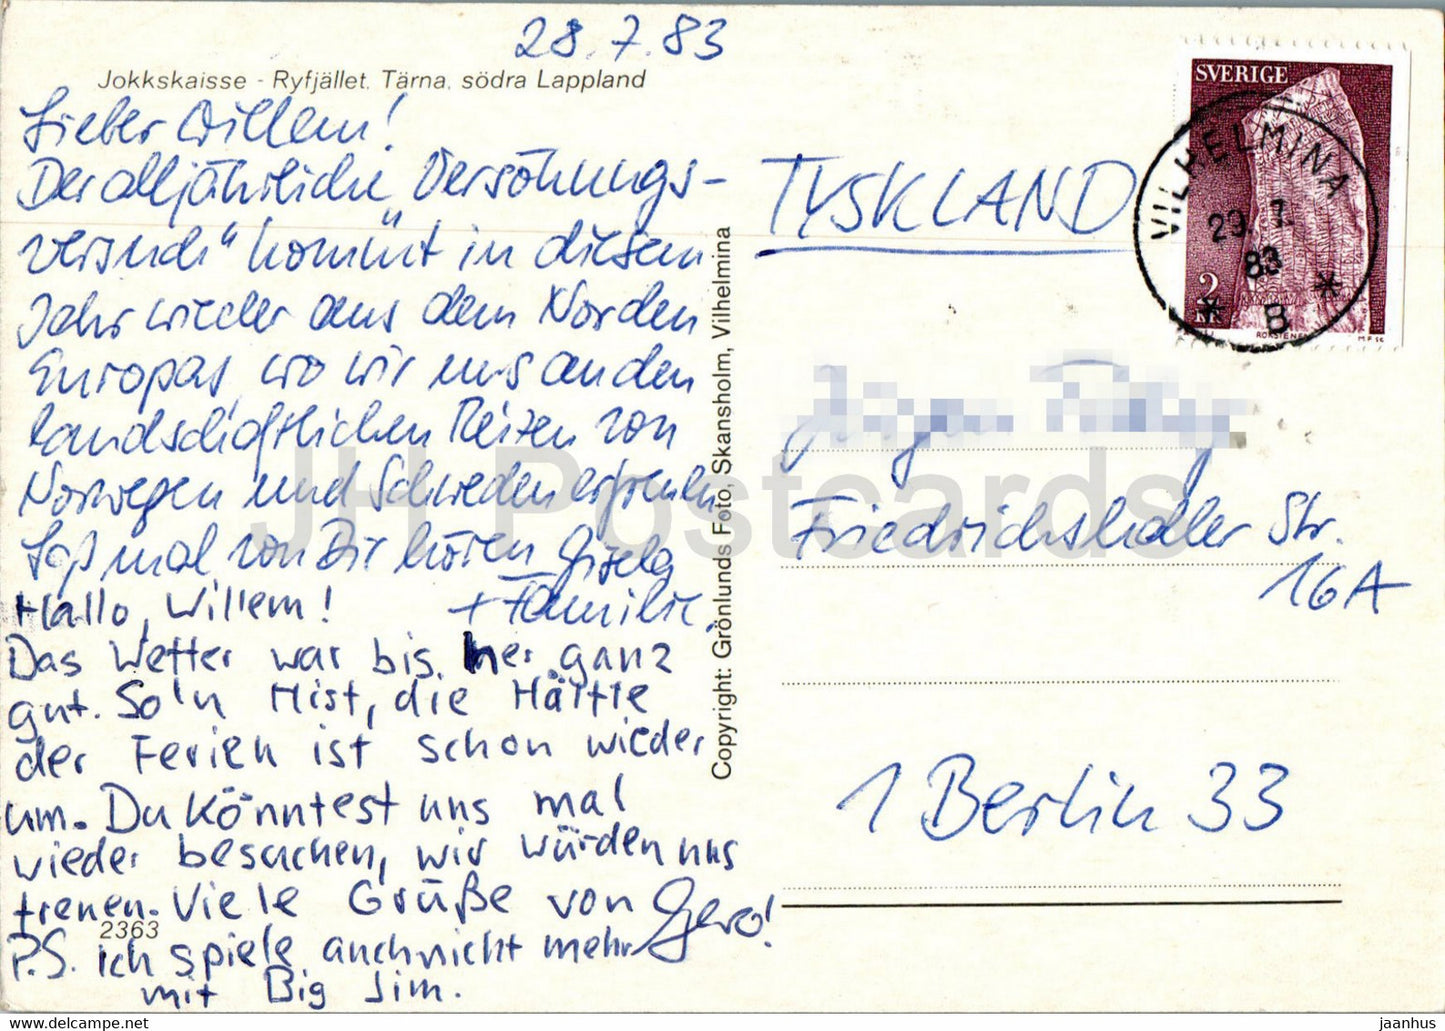 28.7.83
Jokkskaisse - Ryfjället. Tärna, södra Lappland
Lieber Willem!
Der alljährliche „Versöhnungs-
versuch“ kommt in diesem
Jahr wieder aus dem Norden
Europas, wo wir uns an den
landschaftlichen Reizen von
Norwegen und Schweden erfreuen.
Laß mal von Dir hören Gisela
+ Familie.
Hallo, Willem!
Das Wetter war bis her ganz
gut. So'n Mist, die Hälfte
der Ferien ist schon wieder
um. Du könntest uns mal
wieder besuchen, wir würden uns
freuen. Viele Grüße von Gero!
2363
P.S. ich spiele auch nicht mehr
mit Big Jim.
Copyright: Grönlunds Foto, Skansholm, Vilhelmina
SVERIGE
2
KR
ROKSTENEN
VILHELMINA
29. 7.
83
* B *
TYSKLAND
Jürgen
Friedrichshaller Str.
16A
1 Berlin 33
JH Postcards
www.delcampe.net
jaanhus